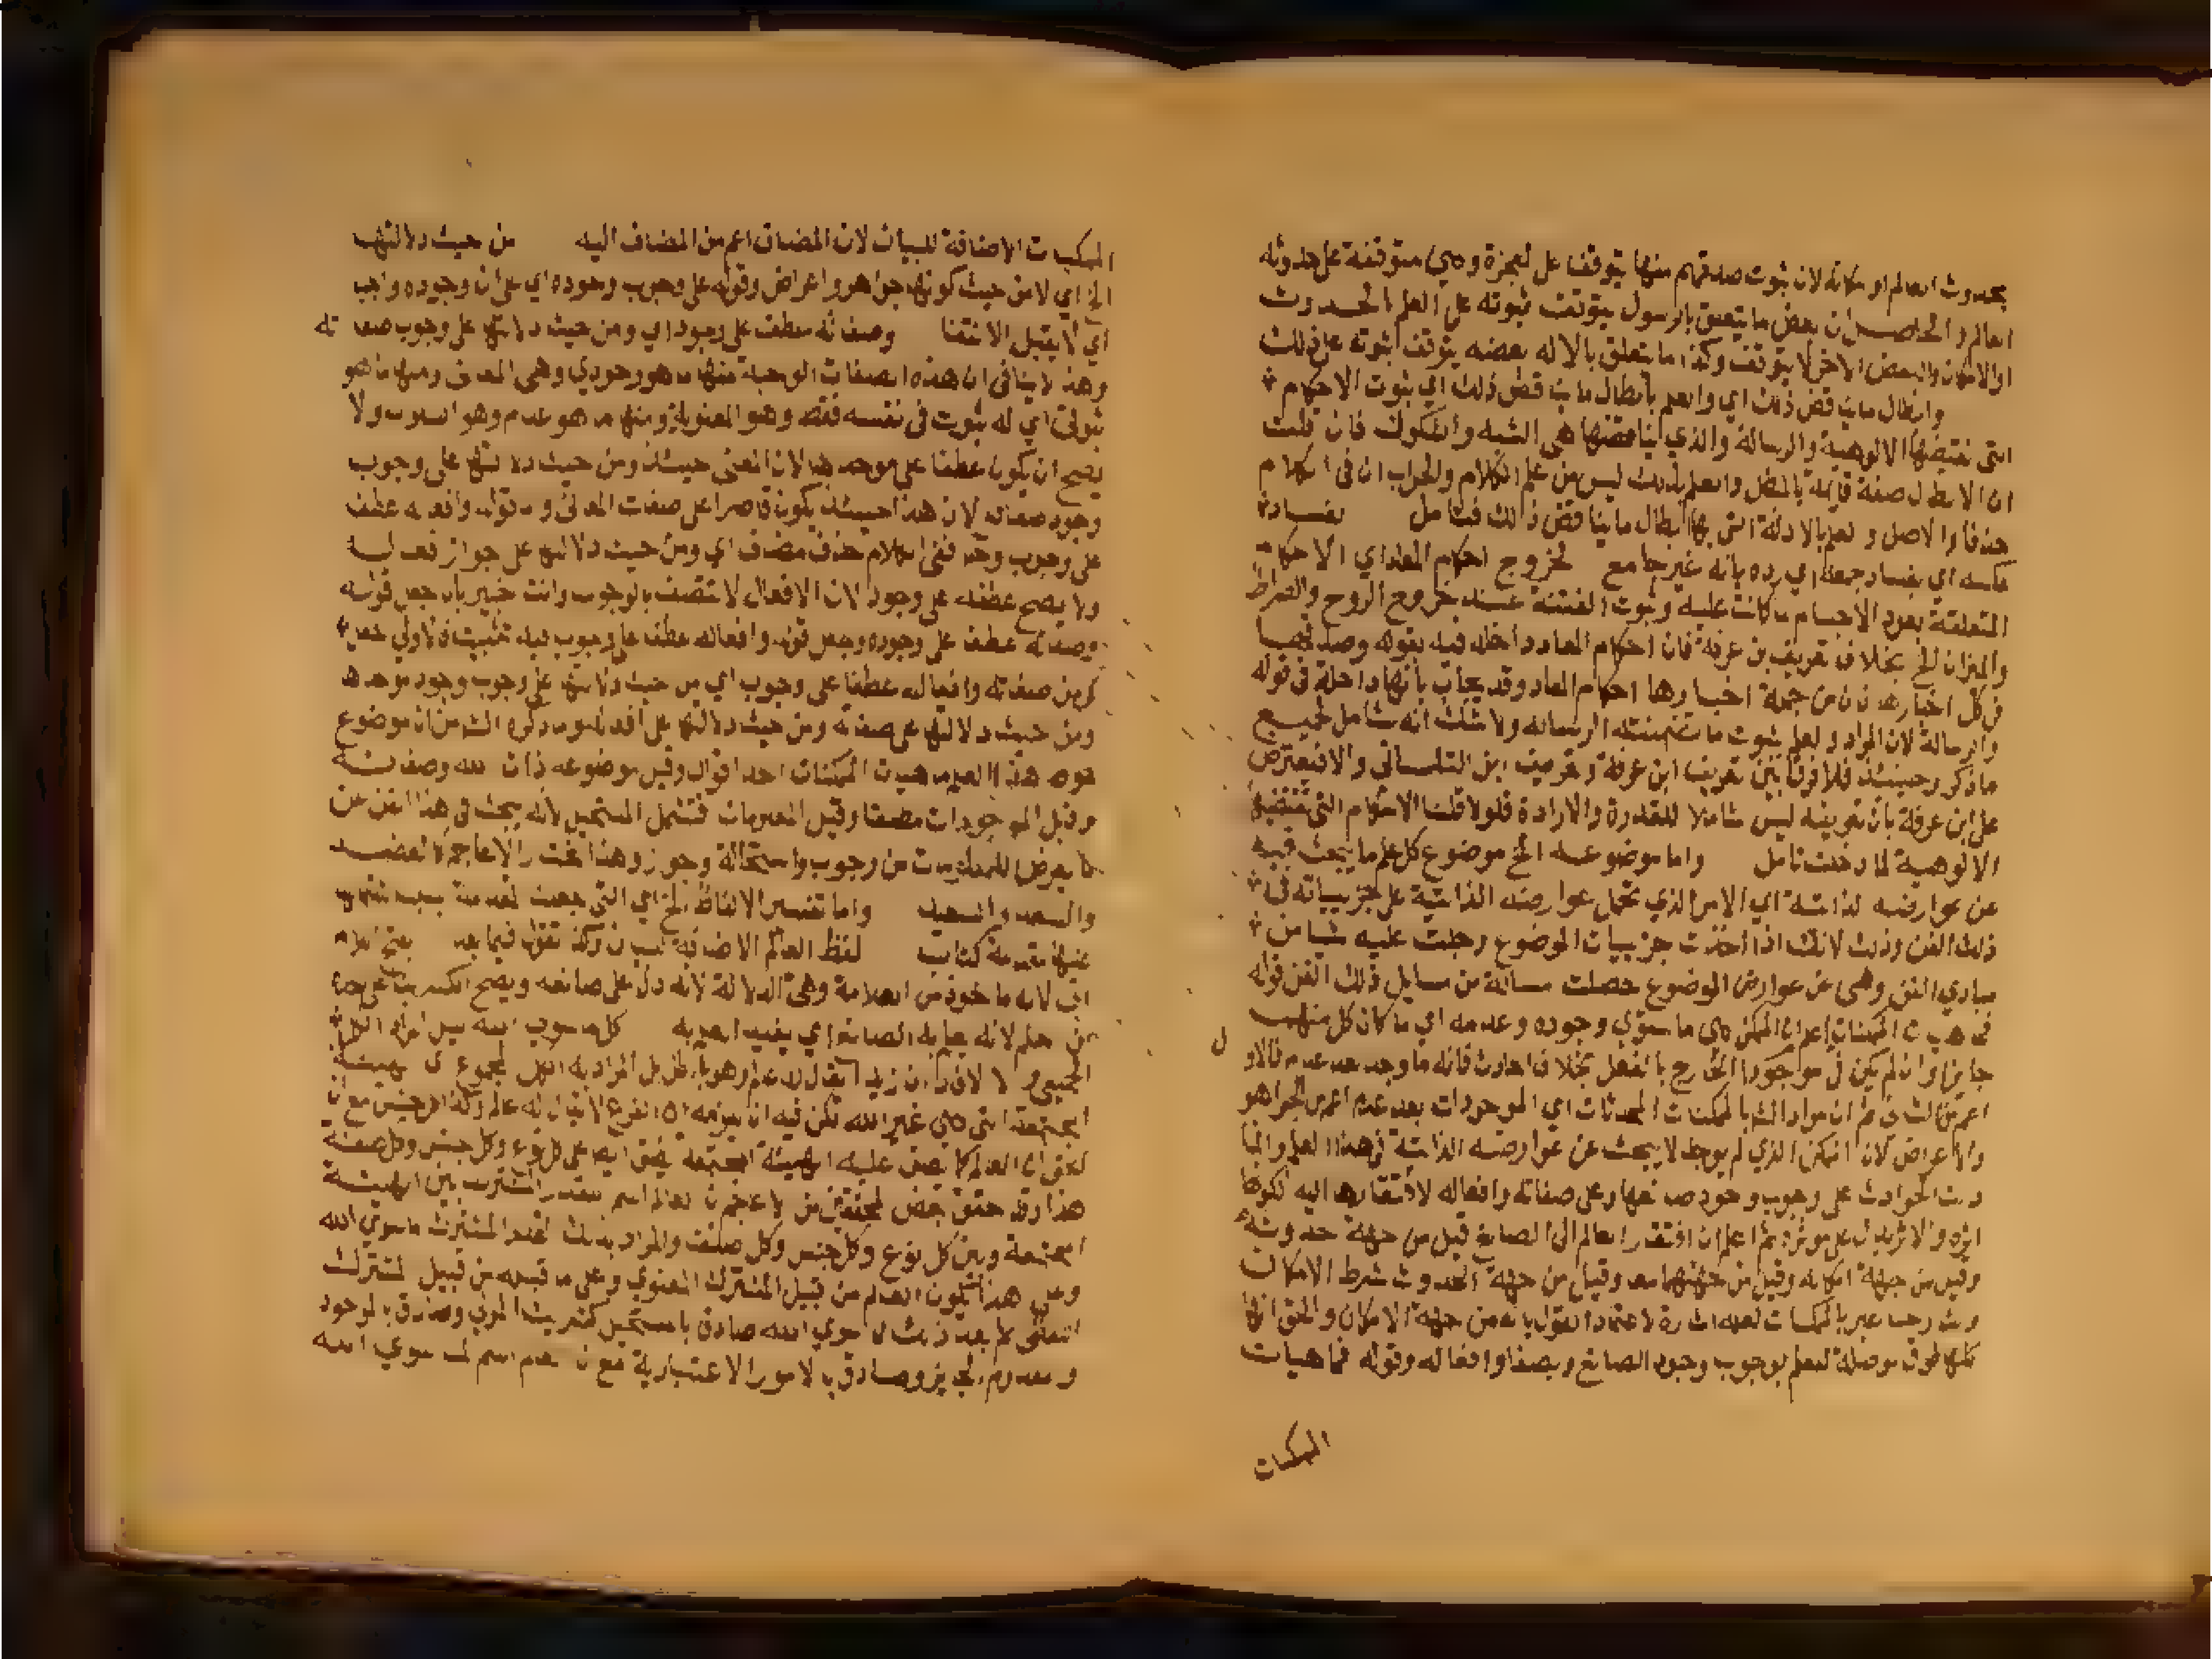 بحدوث العالم او مكانه لان ثبوت صدقهم منها يتوقف على المعجزة وهي متوقفة على حدوثه
العالم والحاصل ان بعض ما يتعلق بالرسول يتوقف ثبوته على العلم بالحدوث
او الامكان والبعض الاخر لا يتوقف وكذا ما يتعلق بالاله بعضه يتوقف ثبوته على ذلك
وابطال ما يناقض ذلك اي والعلم بابطال ما يناقض ذلك اي ثبوت الاحكام
التي تقتضيها الالوهية والرسالة والذي يناقضها هي الشبه والشكوك فان قلت
ان الابطال صفة قائمة بالمبطل والعلم بذلك ليس من علم الكلام والجواب ان في الكلام
حذفا والاصل والعلم بالادلة التي بها ابطال ما يناقض ذلك فتامل لفساد
عكسه اي بفساد جمعه اي رده بانه غير جامع لخروج احكام المعاد اي الاحكام
المتعلقة بعود الاجسام ما كانت عليه وثبوت الفتنة عند خروج الروح والصراط
والميزان الخ بخلاف تعريف بن عرفة فان احكام المعاد داخله فيه بقوله وصدقها
في كل اخبارها فان من جملة اخبارها احكام المعاد وقد يجاب بانها داخلة في قوله
والرسالة لان المراد والعلم بثبوت ما تضمنته الرسالة ولا شك انه شامل لجميع
ما ذكر وحينئذ فلا فرق بين تعريف ابن عرفة وتعريف ابن التلمساني والا فيعترض
على ابن عرفة بان تعريفه ليس شاملا للقدرة والارادة فلولا قلنا الاحكام التي تقتضيها
الالوهية لما دخلت تامل واما موضوعه الخ موضوع كل علم ما يبحث فيه
عن عوارضه لذاته اي الامر الذي تحمل عوارضه الذاتية على جزيياته في
ذلك الفن وذلك لانك اذا اخذت جزييات الموضوع وحملت عليه شيا من
مبادي الفن وهي عن عوارض الموضوع حصلت مسالة من مسايل ذلك الفن قوله
فماهيات الممكنات اعم ان الممكن هي ما ستوي وجوده وعدمه اي ما كان كل منهما
جايزا وان لم يكن في موجودا الخارج بالفعل بخلاف الحادث فانه ما وجد بعد عدم فالاول
اعم من الثاني ثم ان مراد الش بالممكنات المحدثات اي الموجودات بعد عدم اعم من الجواهر
والاعراض لان الممكن الذي لم يوجد لا يبحث عن عوارضه الذاتية في هذا العلم وانما
دلت الحوادث على وجوب وجود صانعها وعلى صفاته وافعاله لافتقارها اليه لكونها
اثره والاثر يدل على موثره ثم اعلم ان افتقار العالم الى الصانع قيل من جهة حدوثه
وقيل من جهة امكانه وقيل من جهتهما معا وقيل من جهة الحدوث شرط الامكان
والشارح عبر بالممكنات لعله اشارة لاعتماد القول بانه من جهة الامكان والحق انها
كلها طرق موصلة للعلم بوجوب وجود الصانع وبصفاته وافعاله وقوله فماهيات
الممكنات
الممكنات الاضافة للبيان لان المضاف اعم من المضاف اليه من حيث دلالتها
الخ اي لا من حيث كونها جواهر واعراض وقوله على وجوب وجوده اي على ان وجوده واجب
اي لا يقبل الانتفا وصفاته معطف على وجود اي ومن حيث دلالتها على وجوب صفاته
وهذا لا ينافي ان هذه الصفات الواجبة منها ما هو وجودي وهي المعاني ومنها ما هو
ثبوتي اي له ثبوت في نفسه فقط وهو المعنوية ومنها ما هو عدم وهو السلوب ولا
يصح ان يكون عطفا على موجدها لان المعنى حينئذ ومن حيث دلالتها على وجوب
وجود صفاته لان هذا حينئذ يكون قاصرا على صفات المعاني وقوله وافعاله عطف
على وجوب وحد ففي الكلام حذف مضاف اي ومن حيث دلالتها على جواز فعاله
ولا يصح عطفه على وجود لان الافعال لا تتصف بالوجوب وانت خبير بان جعل قوله
وصفاته عطف على وجوده وجعل قوله وافعاله عطف على وجوب فيه تشتيت فالاولى جعل
كل من صفاته وافعاله عطفا على وجوب اي من حيث دلالتها على وجوب وجود موجدها
ومن حيث دلالتها على صفاته ومن حيث دلالتها على افعاله وما ذكره الش من ان موضوع
هذا العلم ماهيات الممكنات احد اقوال وقيل موضوعه ذات الله وصفاته
وقيل الموجودات مطلقا وقيل المعلومات فتشمل المستحيل لانه يبحث في هذا الفن عن
ما يعرض للمعلومات من وجوب واستحالة وجواز وهذا مختار الاعاجم كالعضد
والسعد والسيد واما تفسير الالفاظ الخ اي التي جعلت مقدمة
مقدمة كتاب لفظ العالم الاضافة للبيان وكذا تقول فيما بعد بفتح اللام
اي لانه ماخوذ من العلامة وهي الدلالة لانه دال على صانعه ويصح الكسر بنا على
من علم لانه يعلم به الصانع اي يفيد العلم به كل ما سوى الله ليس المراد الكل
الجميعي والا لاقتضى ان زيدا يقال له عالم وهو باطل بل المراد به الكل المجموعي اي الهيئة
المجتمعة التي هي غير الله لكن فيه ان يلزمه ان النوع لا يقال له عالم وكذا الجنس مع ان
الحق ان العالم كما يصدق عليه الهيئة المجتمعة يصدق ايضا على كل نوع وكل جنس وكل صنف
هذا وقد حقق بعض المحققين من الاعاجم ان العالم اسم للقدر المشترك بين الهيئة
المجتمعة وبين كل نوع وكل جنس وكل صنف والمراد بذلك القدر المشترك ما سوى الله
وعلى هذا فيكون العالم من قبيل المشترك المعنوي وعلى ما قبله من قبيل المشترك
اللفظي ثم بعد ذلك ما سوى الله صادق بالمستحيل كشريك الباري وصادق بالموجود
ومعدوم الجايز وصادق بالامور الاعتبارية مع ان العالم اسم لما سوى الله